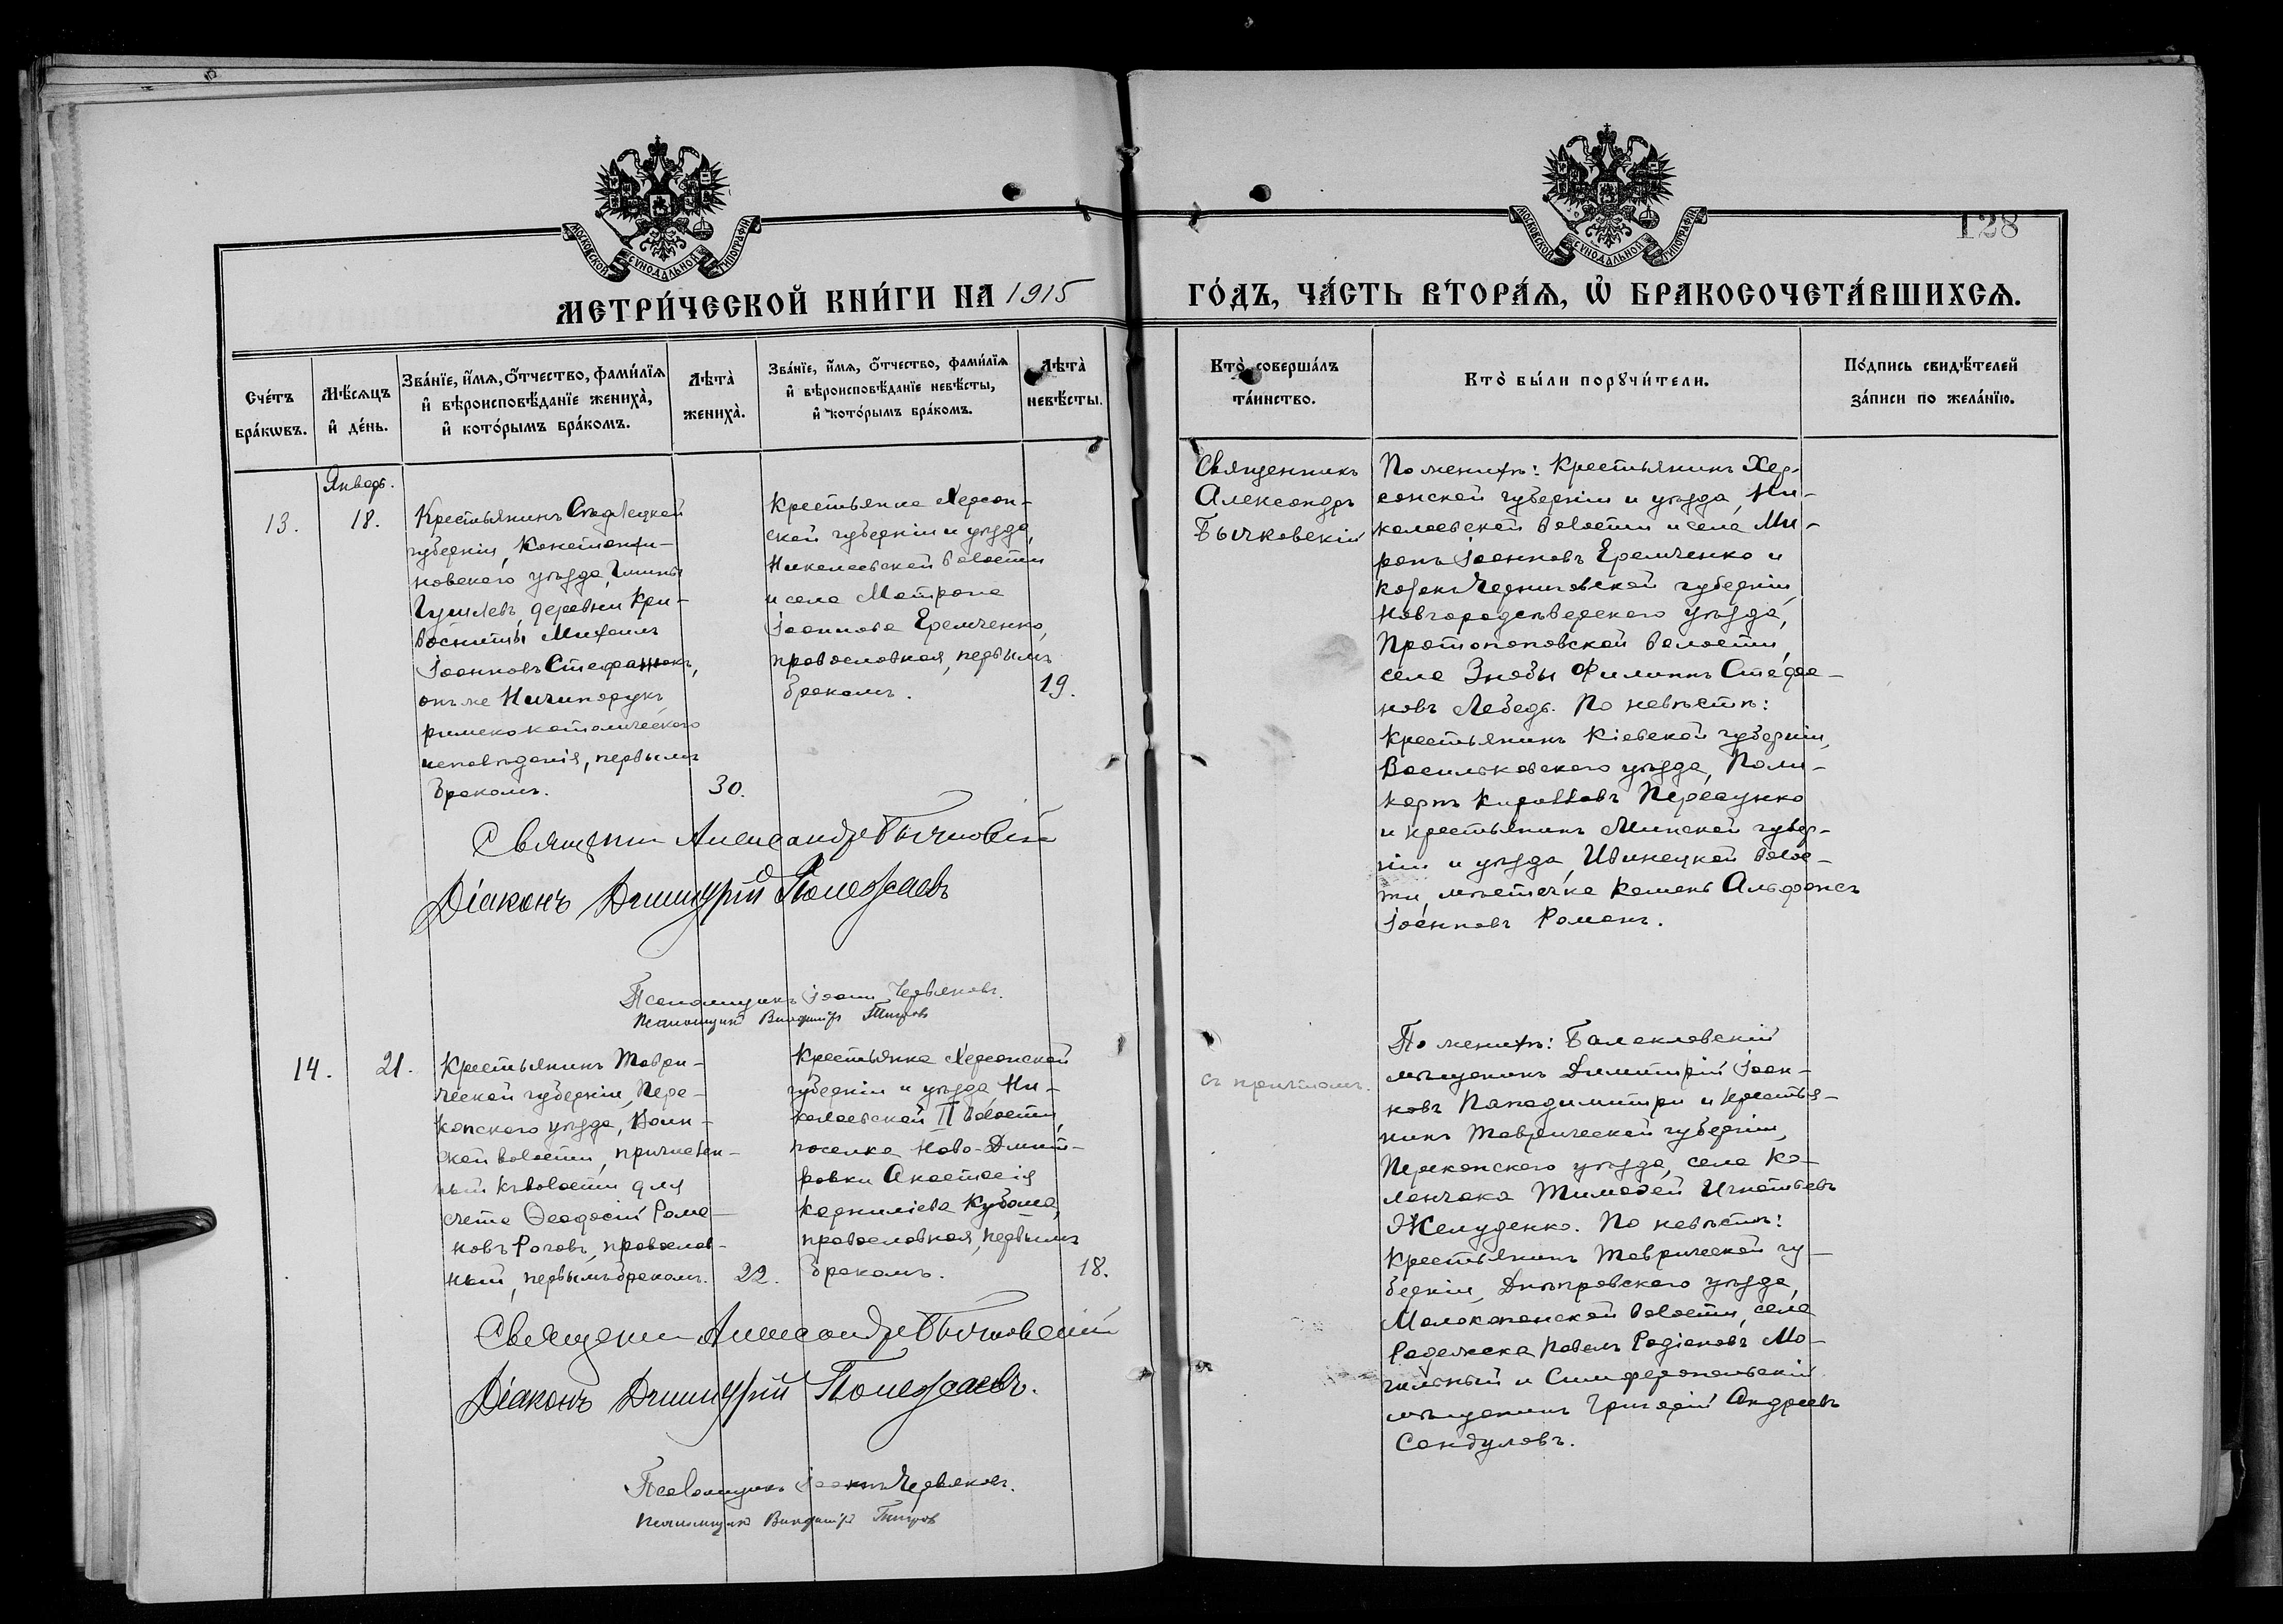 128
МОСКОВСКОЙ СѴНОДАЛЬНОЙ ТИПОГРАФІИ.
МОСКОВСКОЙ СѴНОДАЛЬНОЙ ТИПОГРАФІИ.
МЕТРИ́ЧЕСКОЙ КНИ́ГИ НА 1915
ГО́ДЪ, ЧА́СТЬ ВТОРА́Ѧ, Ѡ҆ БРАКОСОЧЕТА́ВШИХСѦ.
Сче́тъ
бра́кѡвъ.
Мѣ́сѧцъ
и҆ де́нь.
Зва́нїе, и҆́мѧ, ѻ҆́тчество, фами́лїѧ
и҆ вѣроисповѣ́данїе жениха̀,
и҆ кото́рымъ бра́комъ.
Лѣта̀
жениха̀.
Зва́нїе, и҆́мѧ, ѻ҆́тчество, фами́лїѧ
и҆ вѣроисповѣ́данїе невѣ́сты,
и҆ кото́рымъ бра́комъ.
Лѣта̀
невѣ́сты.
Кто̀ соверша́лъ
та́инство.
Кто̀ бы́ли порꙋчи́тели.
По́дпись свидѣ́телей
за́писи по жела́нїю.
Январь.
13.
18.
Крестьянинъ Сѣдлецкой
губерніи, Константи-
новскаго уѣзда, Гмины
деревни Кри-
Михаилъ
Іоанновъ Стефанюкъ,
онъ же Ничипорукъ
римскокатолическаго
исповѣданія, первымъ
бракомъ.
30.
Крестьянка Херсон-
ской губерніи и уѣзда,
Николаевской волости
и села Матрона
Іоаннова Еремченко,
православная, первымъ
бракомъ.
19.
Священникъ
Александръ
Бычковскій
По женихѣ: Крестьянинъ Хер-
сонской губерніи и уѣзда, Ни-
колаевской волости и села Ми-
ронъ Іоанновъ Еремченко и
козакъ Черниговской губерніи,
Новгородсѣверскаго уѣзда,
Протопоповской волости,
села Знобы Филиппъ Стефа-
новъ Лебедь. По невѣстѣ:
Крестьянинъ Кіевской губерніи,
Васильковскаго уѣзда, Поли-
карпъ Кирилловъ Пересунко
и крестьянинъ Минской губер-
ніи и уѣзда, Ивинецкой волос-
ти, мѣстечка Камень Альфонсъ
Іоанновъ Романъ.
Священникъ Александръ Бычковскій
Діаконъ Димитрій Полежаевъ
Псаломщикъ Іоаннъ Червяковъ.
Псаломщикъ Владиміръ Титровъ
14.
21.
Крестьянинъ Таври-
ческой губерніи, Пере-
копскаго уѣзда, Воин-
ской волости, причислен-
ный къ волости для
счета Ѳеодосій Рома-
новъ Роговъ, православ-
ный, первымъ бракомъ.
22.
Крестьянка Херсонской
губерніи и уѣзда, Ни-
колаевской II волости,
поселка Ново-Дмит-
ровки Анастасія
Корниліева Кубома,
православная, первымъ
бракомъ.
18.
съ причтомъ.
По женихѣ: Балаклавскій
мѣщанинъ Димитрій Іоан-
новъ Пападимитри и крестья-
нинъ Таврической губерніи,
Перекопскаго уѣзда, села Ка-
ланчака Тимофей Игнатьевъ
Желуденко. По невѣстѣ:
Крестьянинъ Таврической гу-
берніи, Днѣпровскаго уѣзда,
Малокопанской волости, села
Павелъ Родіоновъ Мо-
гильный и Симферопольскій
мѣщанинъ Григорій Андреевъ
Сандуловъ.
Священникъ Александръ Бычковскій
Діаконъ Димитрій Полежаевъ.
Псаломщикъ Іоаннъ Червяковъ.
Псаломщикъ Владиміръ Титровъ